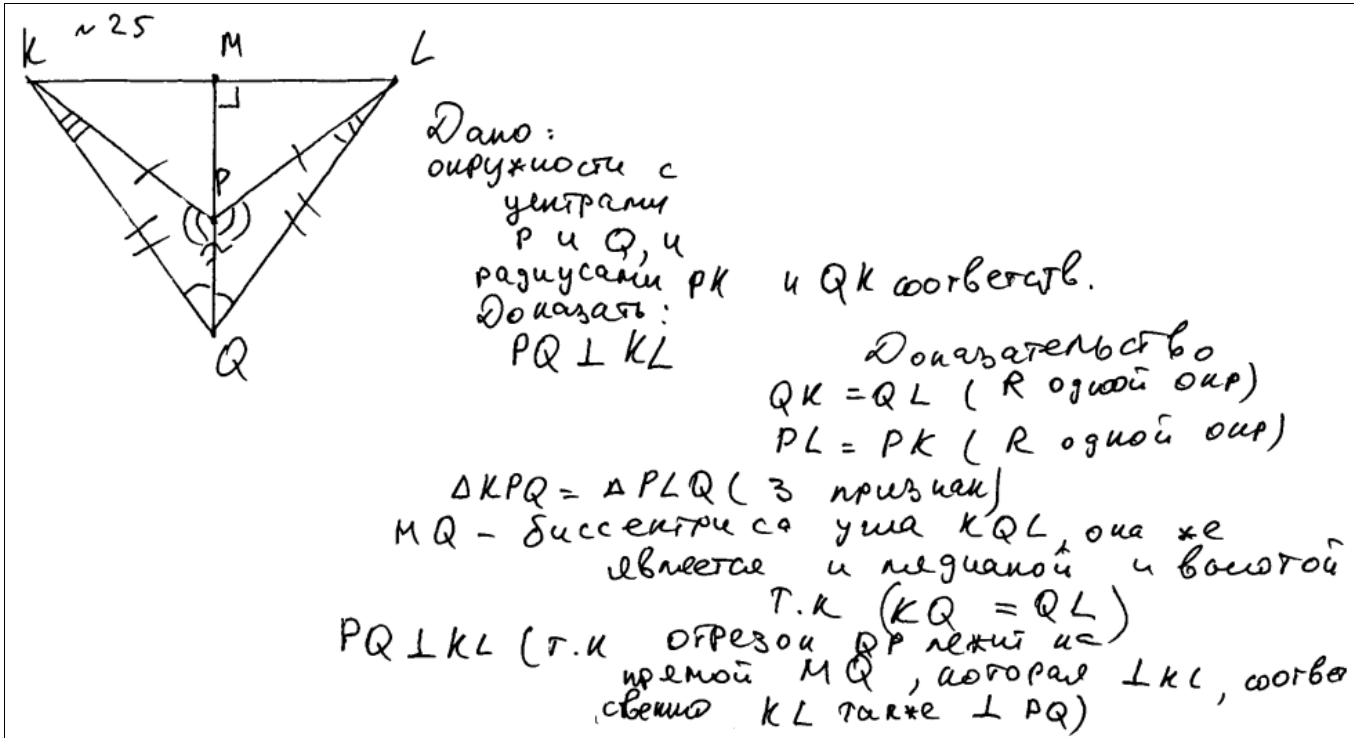 ~ 25
K M L
P
Q
Дано:
окружности с
центрами
P и Q, и
радиусами PK и QK соответств.
Доказать:
PQ ⊥ KL
Доказательство
QK = QL ( R одной окр)
PL = PK ( R одной окр)
Δ KPQ = Δ PLQ ( 3 признак)
MQ - биссектриса угла KQL, она же
является и медианой и высотой
Т.к (KQ = QL)
PQ ⊥ KL (т.к отрезок QP лежит на
прямой MQ, которая ⊥ KL, соотве
ственно KL также ⊥ PQ)